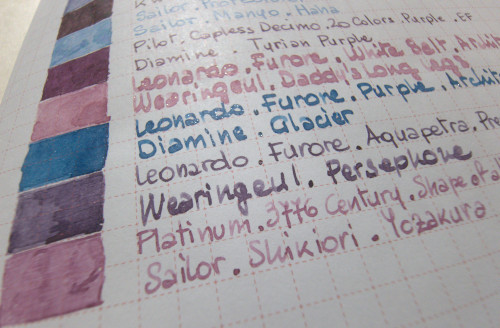 Sailor .
Sailor . Manyo . Hana
Pilot . Capless Decimo . 20 Colors . Purple . EF
Diamine . Tyrian Purple
Leonardo . Furore . White Belt . Archi
Wearingeul . Daddy's Long Legs
Leonardo . Furore . Purple . Archi
Diamine . Glacier
Leonardo . Furore . Aquapetra . Pre
Wearingeul . Persephone
Platinum . 3776 Century . Shape of a
Sailor . Shikiori . Yozakura